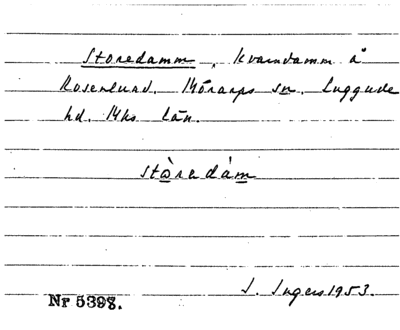 Storedamm, kvarndamm å
Rosenlund. Mörarps sn. Luggude
hd. Mhs län.
stòredám
I. Ingers 1953.
Nr 5398.